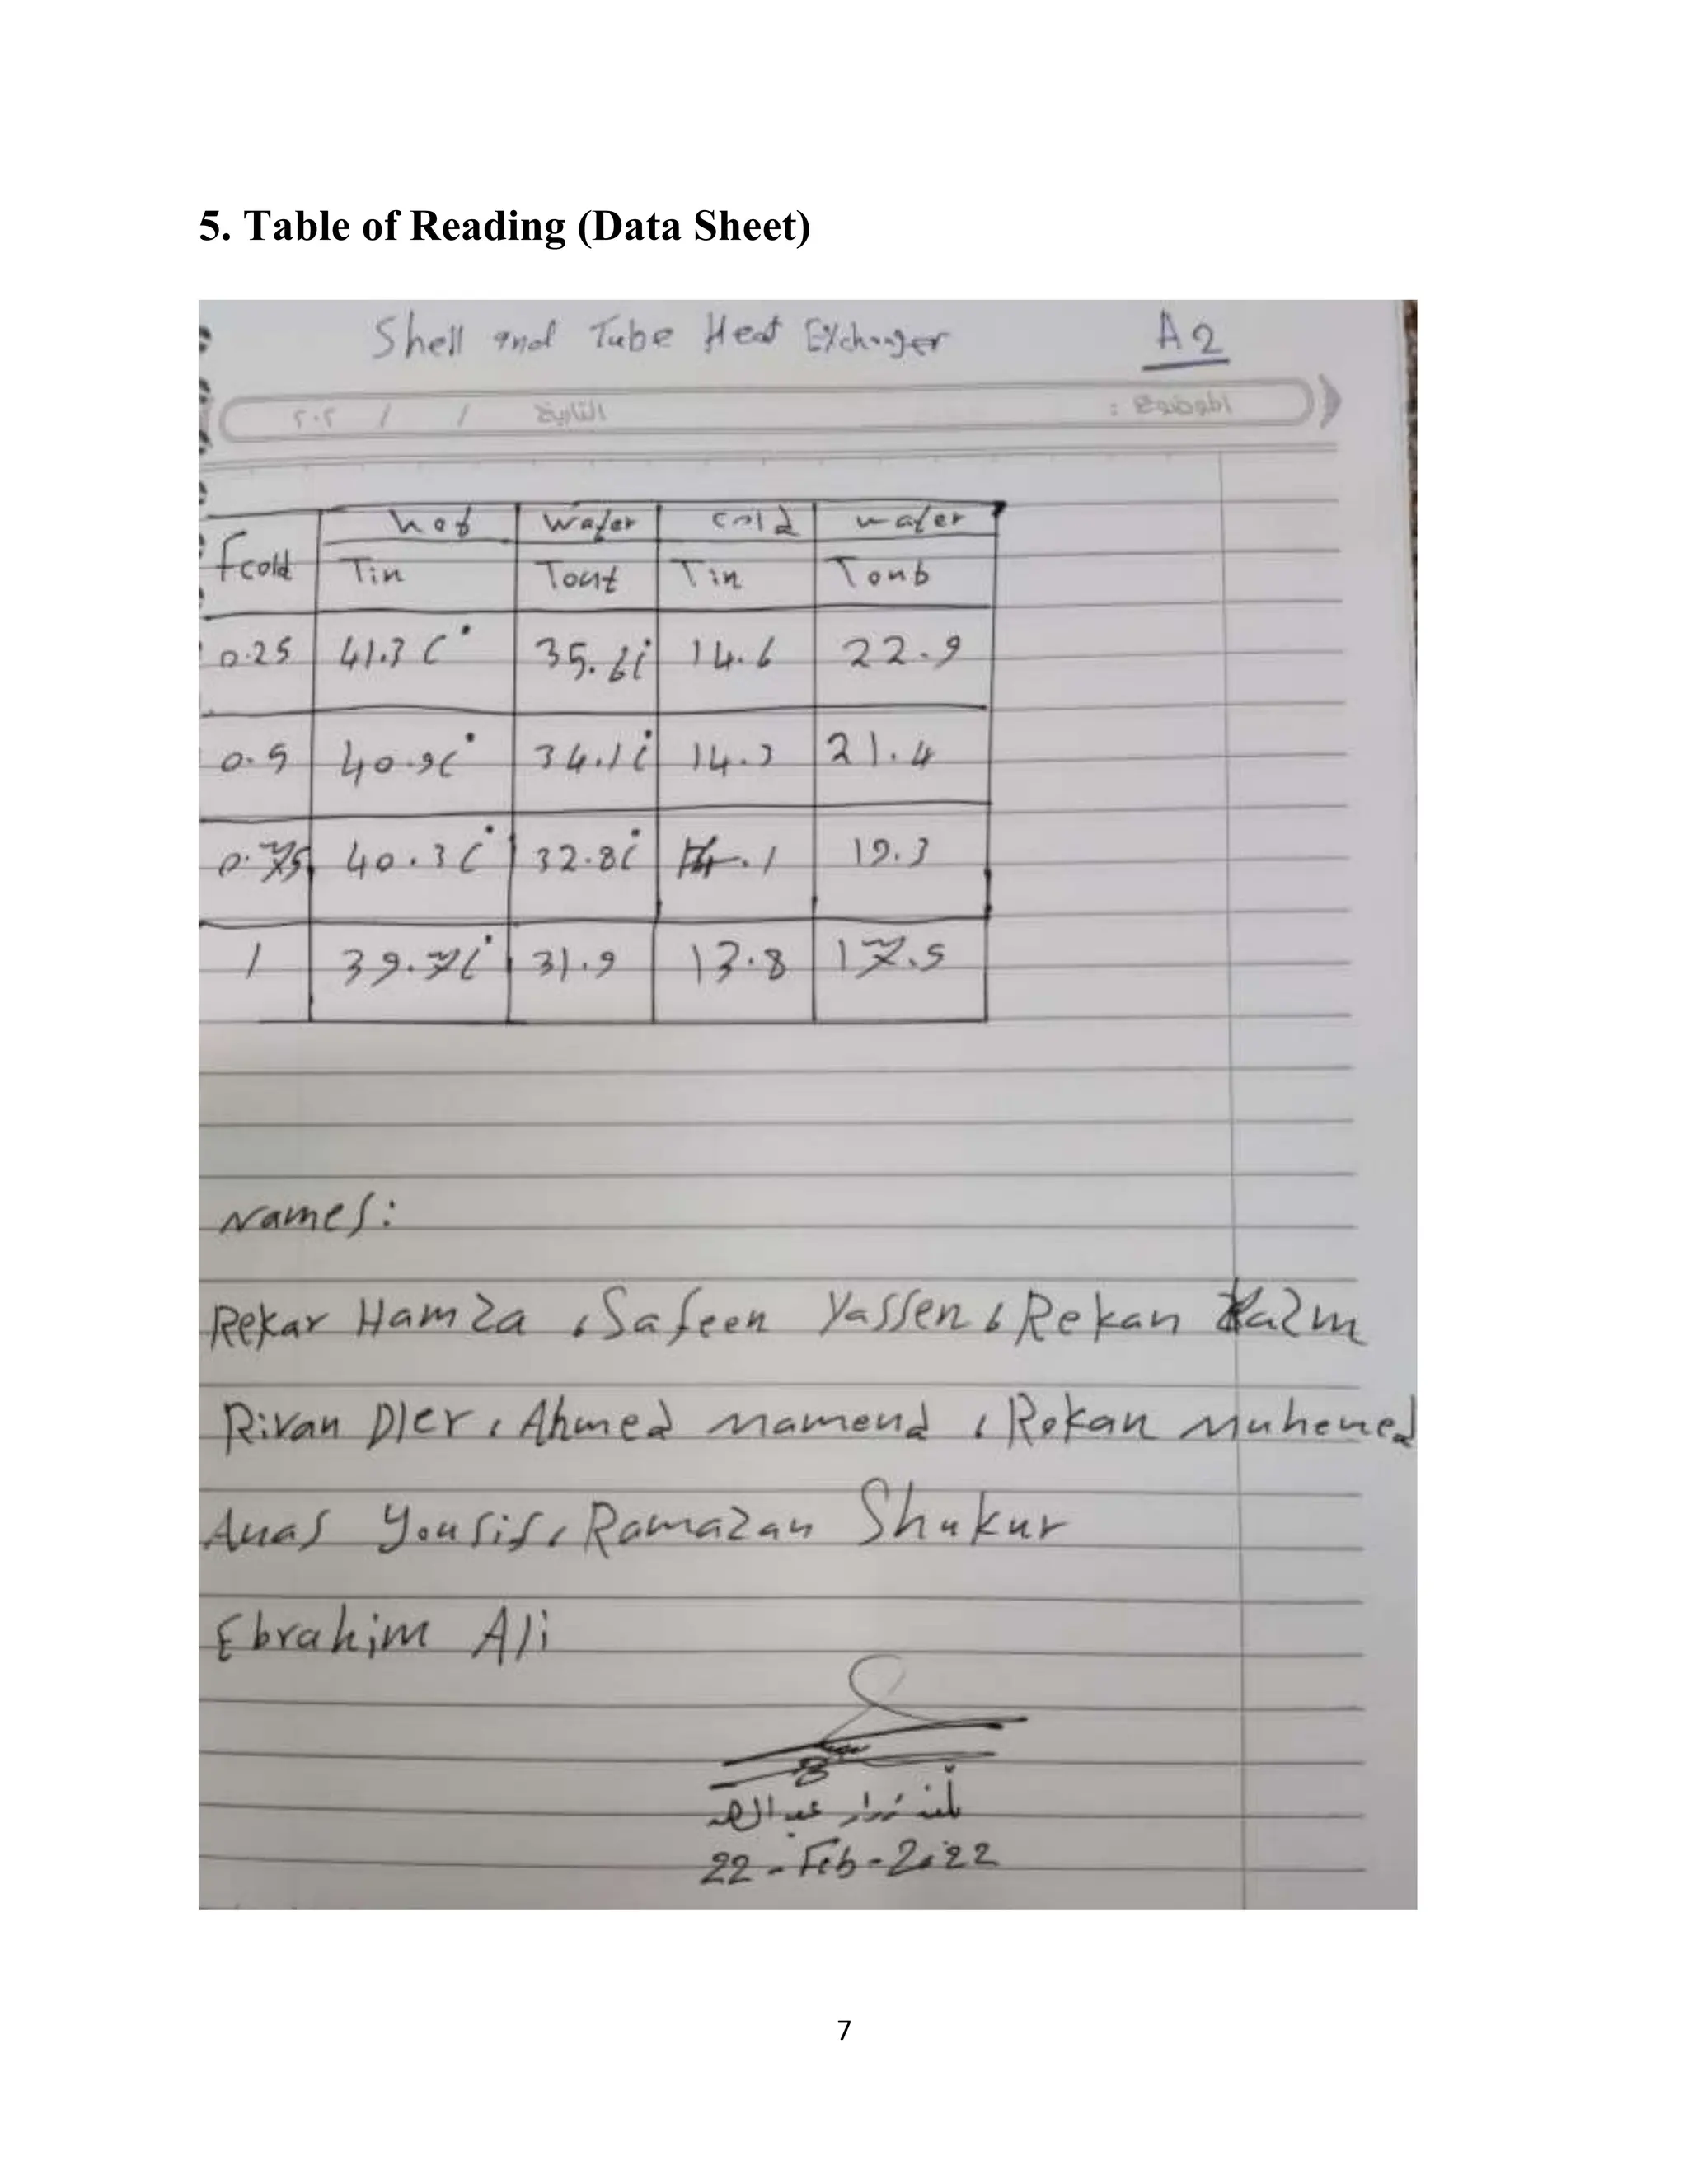 5. Table of Reading (Data Sheet)
Shell and Tube Heat Exchanger A2
٢٠٢ / / التاريخ الموضوع :
Fcold hot water cold water
Tin Tout Tin Tout
0.25 41.3 C° 35.6 C° 14.6 22.9
0.5 40.9 C° 34.1 C° 14.3 21.4
0.75 40.3 C° 32.8 C° 14.1 19.3
1 39.7 C° 31.9 13.8 17.5
Names:
Rekar Hamza , Safeen Yassen , Rekan Kazm
Rivan Dler , Ahmed Mamend , Rekan Muhemed
Anas Yousif , Ramazan Shukur
Ebrahim Ali
عبدالله
22-Feb-2022
7